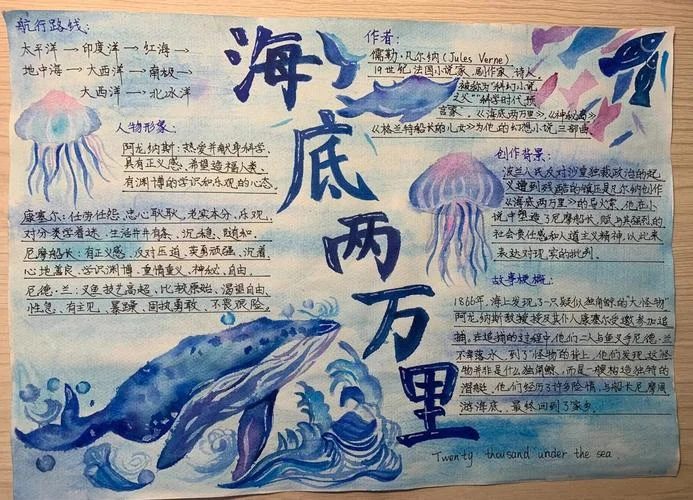 航行路线：
太平洋→印度洋→红海→
地中海→大西洋→南极→
大西洋→北冰洋
人物形象：
阿龙纳斯：热爱并献身科学，
具有正义感，希望造福人类，
有渊博的学识和乐观的心态。
康塞尔：任劳任怨，忠心耿耿，老实本分，乐观，
对分类学着迷，生活井井有条，沉稳，随和
尼摩船长：有正义感，反对压迫，英勇顽强，沉着
心地善良、学识渊博，重情重义，神秘，自由。
尼德·兰：叉鱼技艺高超，比较原始，渴望自由
性急，有主见，暴躁，固执勇敢，不畏艰险。
海底两万里
作者：
儒勒·凡尔纳（Jules Verne）
19世纪法国小说家，剧作家，诗人，
被称为“科幻小说
之父”“科学时代预
言家”，《海底两万里》，《神秘岛》
《从格兰特船长的儿女》为他的幻想小说三部曲。
创作背景：
波兰人民反对沙皇独裁政治的起
义遭到残酷的镇压凡尔纳创作
《海底两万里》的导火索，他在小
说中塑造了尼摩船长，赋与其强烈的
社会责任感和人道主义精神，以此来
表达对现实的批判。
故事梗概：
1866年，海上发现了一只疑似独角鲸的“大怪物”
阿龙纳斯教授及其仆人康塞尔受邀参加追
捕，在追捕的过程中，他们二人与鱼叉手尼德·兰
不幸落水，到了“怪物”的背上，他们发现，这怪
物并非是什么独角鲸，而是一艘构造独特的
潜艇，他们经历了许多险情，与船长尼摩周
游海底，最终回到了家乡。
Twenty thousand under the sea.